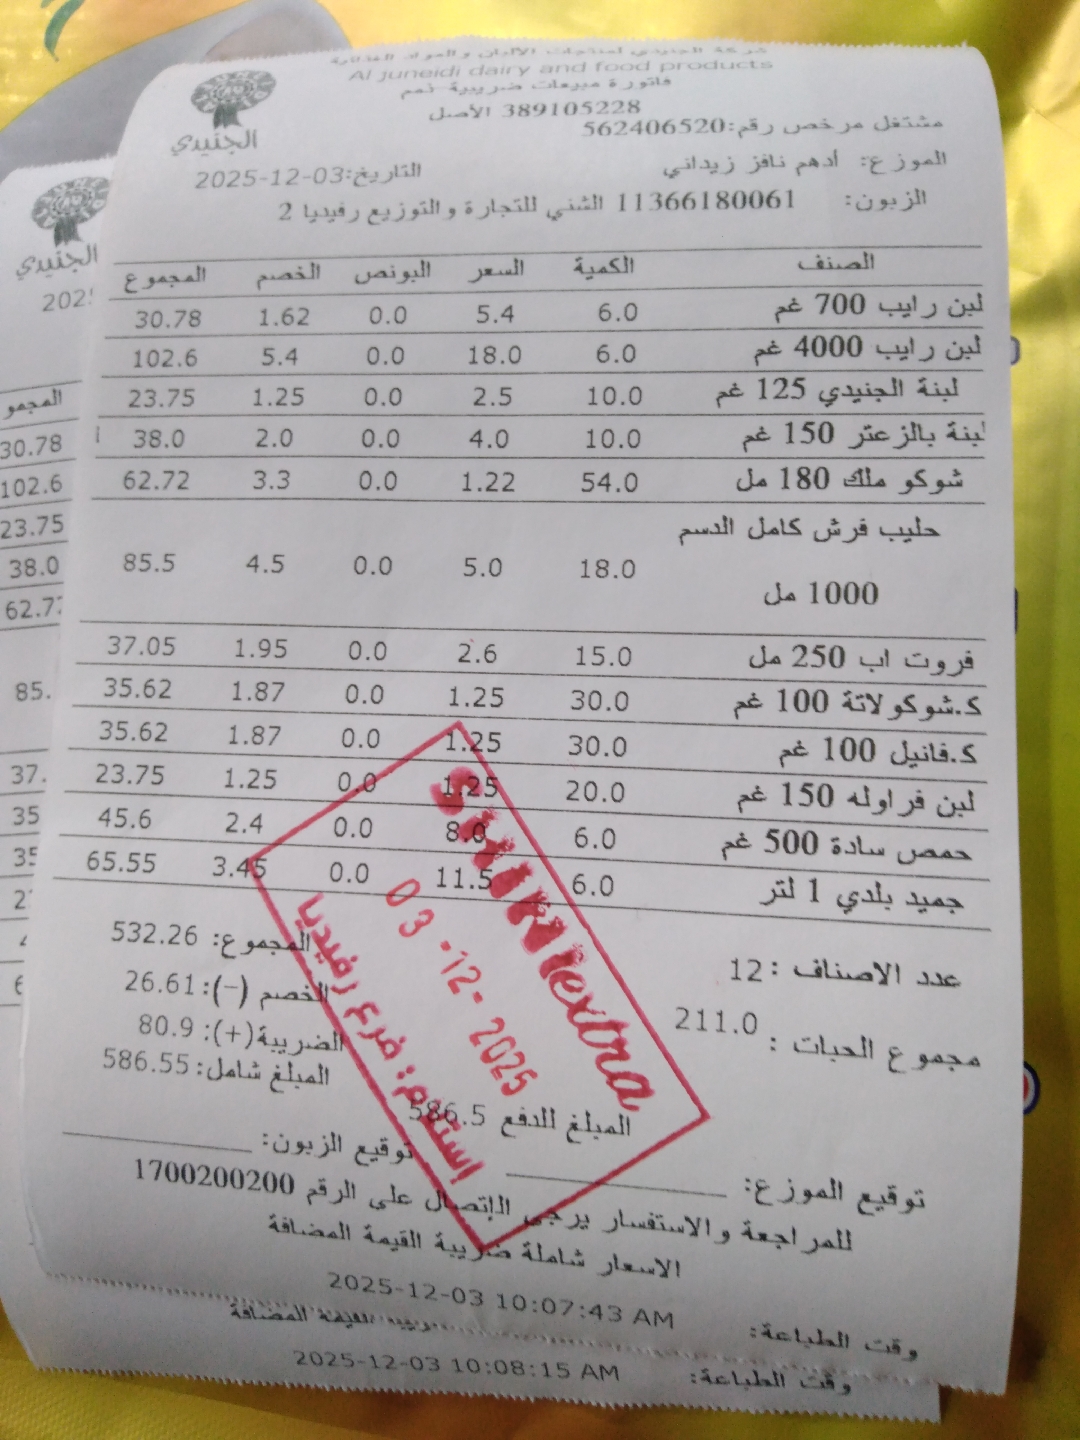 شركة الجنيدي لمنتجات الألبان والمواد الغذائية
Al juneidi dairy and food products
فاتورة مبيعات ضريبية ذمم
389105228 الأصل
مشتغل مرخص رقم:562406520
الجنيدي
الموزع: أدهم نافز زيداني
التاريخ:2025-12-03
الزبون: 11366180061 الشني للتجارة والتوزيع رفيديا 2
الصنف الكمية السعر البونص الخصم المجموع
لبن رايب 700 غم 6.0 5.4 0.0 1.62 30.78
لبن رايب 4000 غم 6.0 18.0 0.0 5.4 102.6
لبنة الجنيدي 125 غم 10.0 2.5 0.0 1.25 23.75
لبنة بالزعتر 150 غم 10.0 4.0 0.0 2.0 38.0
شوكو ملك 180 مل 54.0 1.22 0.0 3.3 62.72
حليب فرش كامل الدسم
1000 مل 18.0 5.0 0.0 4.5 85.5
فروت اب 250 مل 15.0 2.6 0.0 1.95 37.05
ك.شوكولاتة 100 غم 30.0 1.25 0.0 1.87 35.62
ك.فانيل 100 غم 30.0 1.25 0.0 1.87 35.62
لبن فراوله 150 غم 20.0 1.25 0.0 1.25 23.75
حمص سادة 500 غم 6.0 8.0 0.0 2.4 45.6
جميد بلدي 1 لتر 6.0 11.5 0.0 3.45 65.55
عدد الاصناف : 12
مجموع الحبات : 211.0
المجموع: 532.26
الخصم (-): 26.61
الضريبة(+): 80.9
المبلغ شامل: 586.55
المبلغ للدفع 586.5
extra
03 -12- 2025
استلام: فرع رفيديا
توقيع الموزع:
توقيع الزبون:
للمراجعة والاستفسار يرجى الإتصال على الرقم 1700200200
الاسعار شاملة ضريبة القيمة المضافة
وقت الطباعة: 2025-12-03 10:07:43 AM
ضريبة القيمة المضافة
وقت الطباعة: 2025-12-03 10:08:15 AM
الجنيدي
2025
المجمو
30.78
102.6
23.75
38.0
62.7
85.
37.
35
35
2
4
6